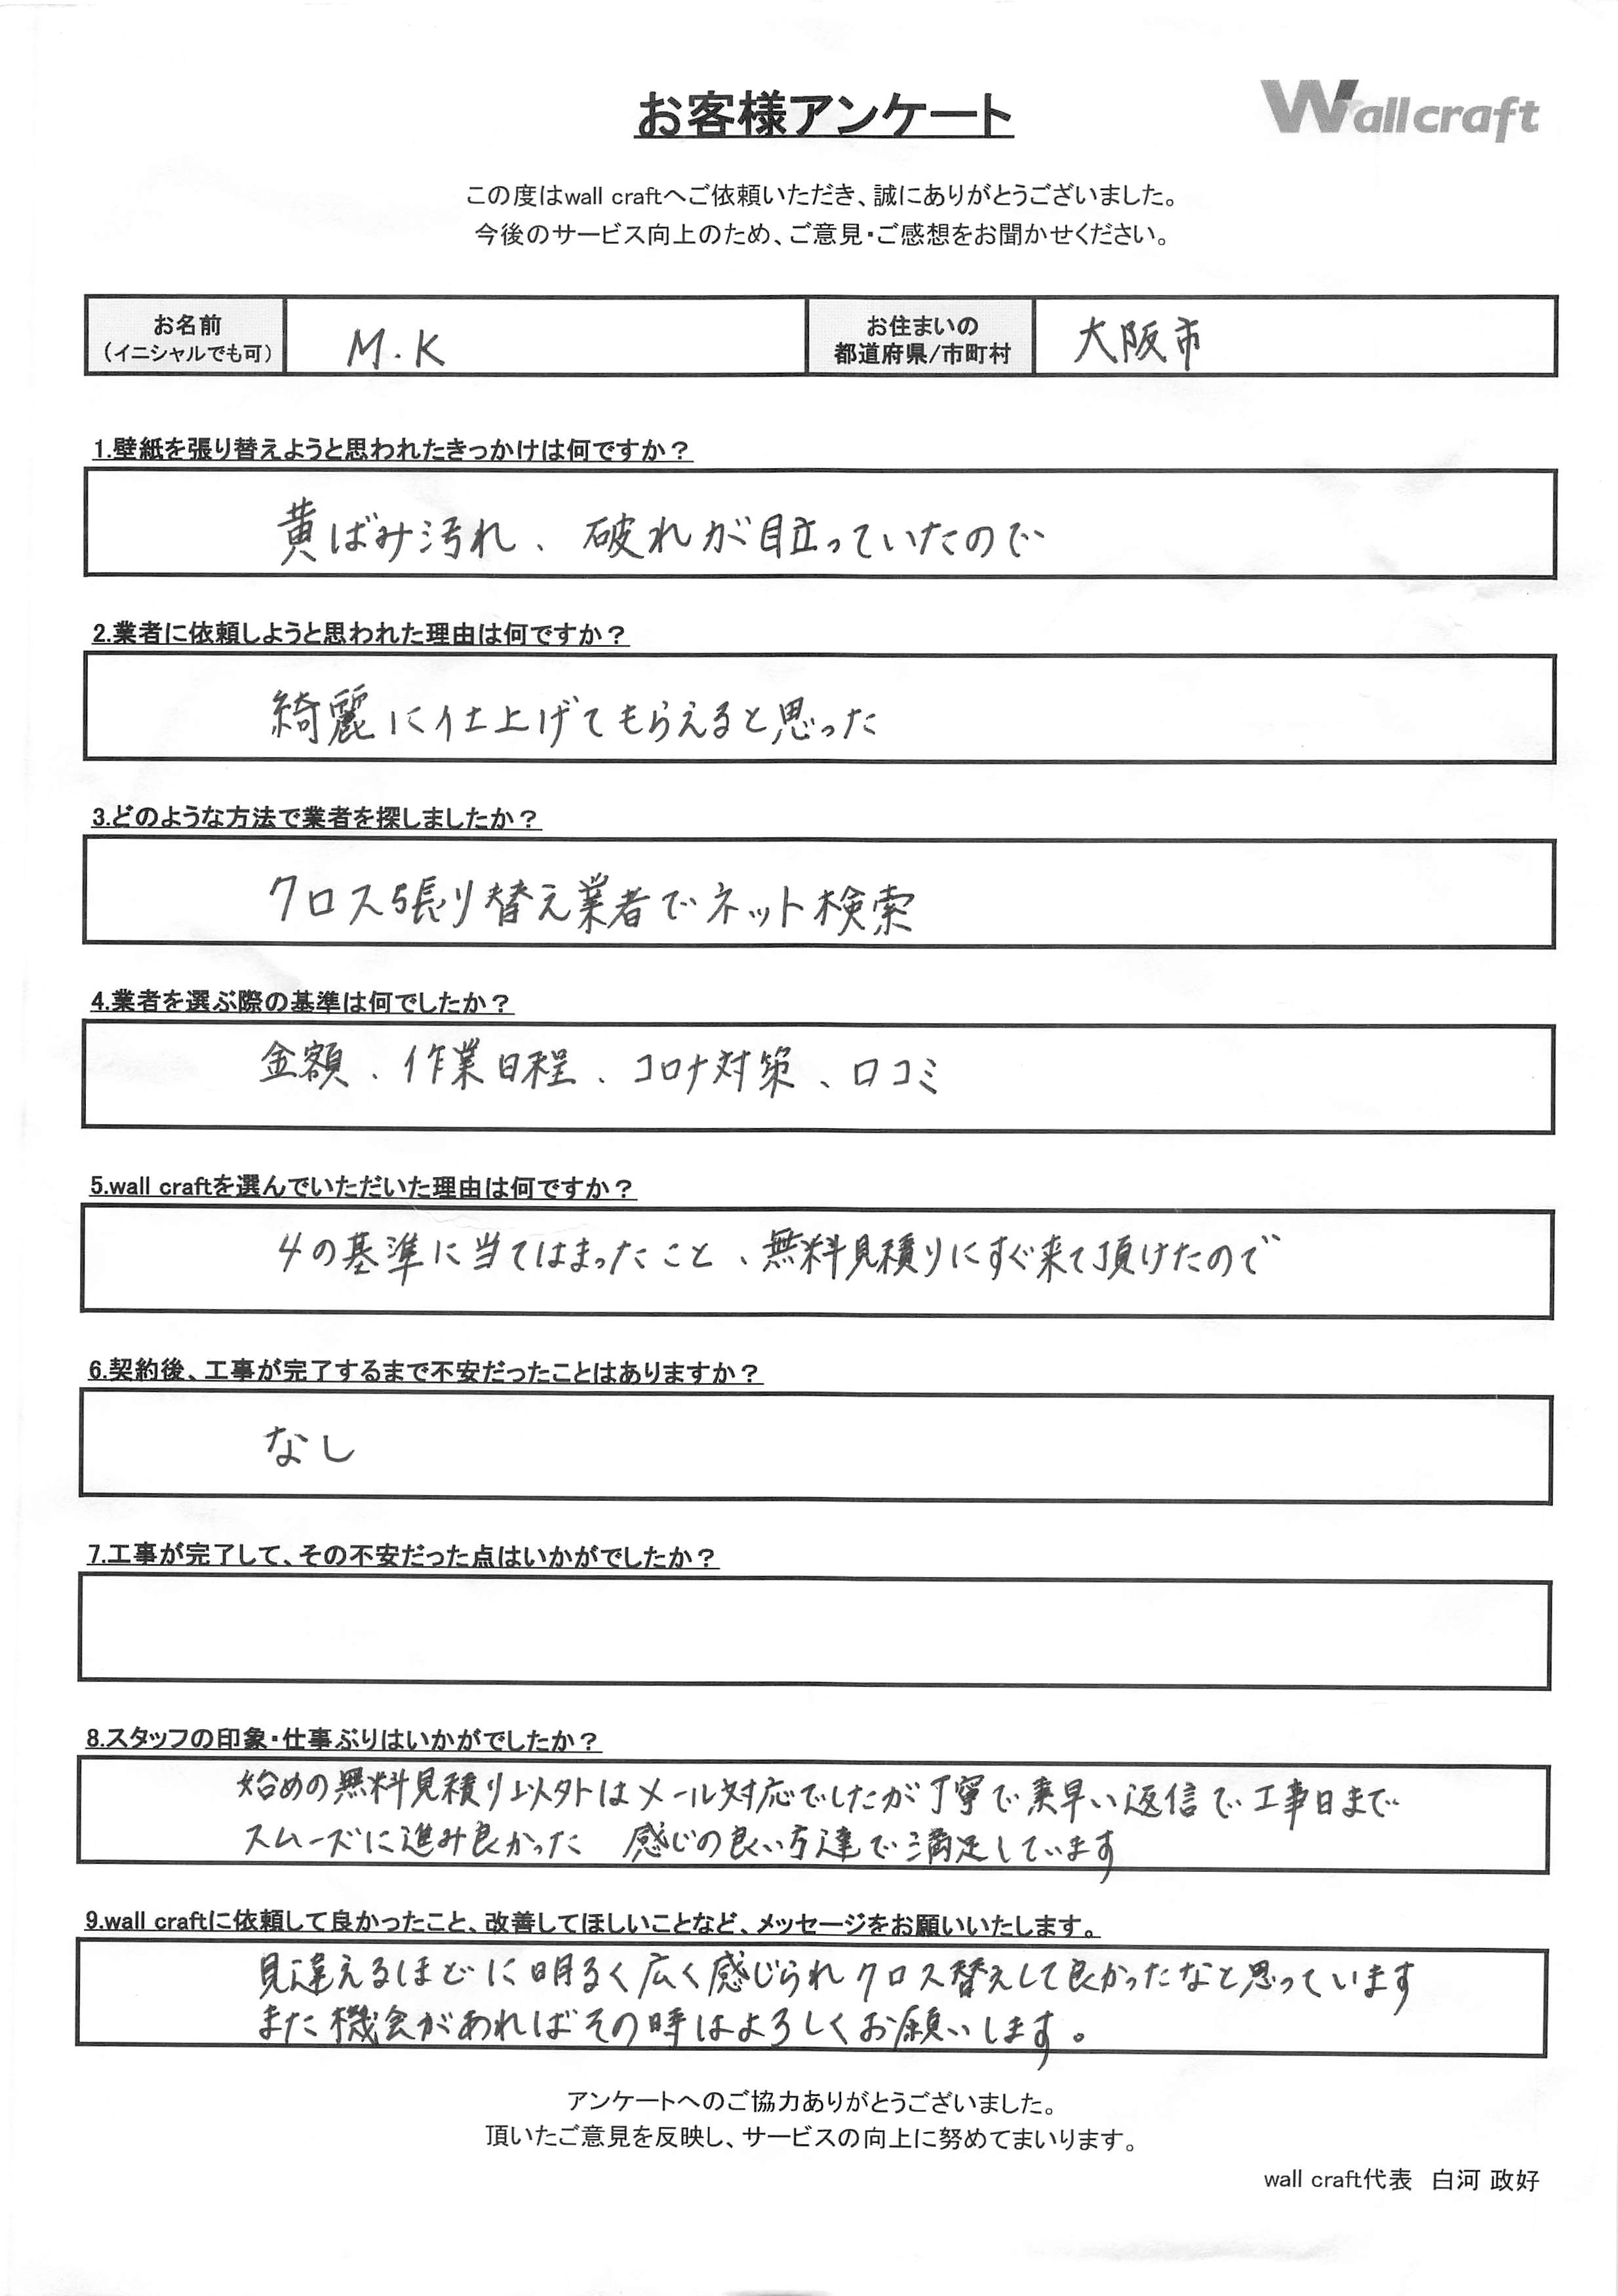 お客様アンケート
Wallcraft
この度はwall craftへご依頼いただき、誠にありがとうございました。
今後のサービス向上のため、ご意見・ご感想をお聞かせください。
お名前
（イニシャルでも可）
M.K
お住まいの
都道府県/市町村
大阪市
1.壁紙を張り替えようと思われたきっかけは何ですか？
黄ばみ汚れ、破れが目立っていたので
2.業者に依頼しようと思われた理由は何ですか？
綺麗に仕上げてもらえると思った
3.どのような方法で業者を探しましたか？
クロス張り替え業者でネット検索
4.業者を選ぶ際の基準は何でしたか？
金額、作業日程、コロナ対策、口コミ
5.wall craftを選んでいただいた理由は何ですか？
4の基準に当てはまったこと、無料見積りにすぐ来て頂けたので
6.契約後、工事が完了するまで不安だったことはありますか？
なし
7.工事が完了して、その不安だった点はいかがでしたか？
8.スタッフの印象・仕事ぶりはいかがでしたか？
始めの無料見積り以外はメール対応でしたが丁寧で素早い返信で工事日まで
スムーズに進み良かった 感じの良い方達で満足しています
9.wall craftに依頼して良かったこと、改善してほしいことなど、メッセージをお願いいたします。
見違えるほどに明るく広く感じられクロス替えして良かったなと思っています
また機会があればその時はよろしくお願いします。
アンケートへのご協力ありがとうございました。
頂いたご意見を反映し、サービスの向上に努めてまいります。
wall craft代表 白河 政好